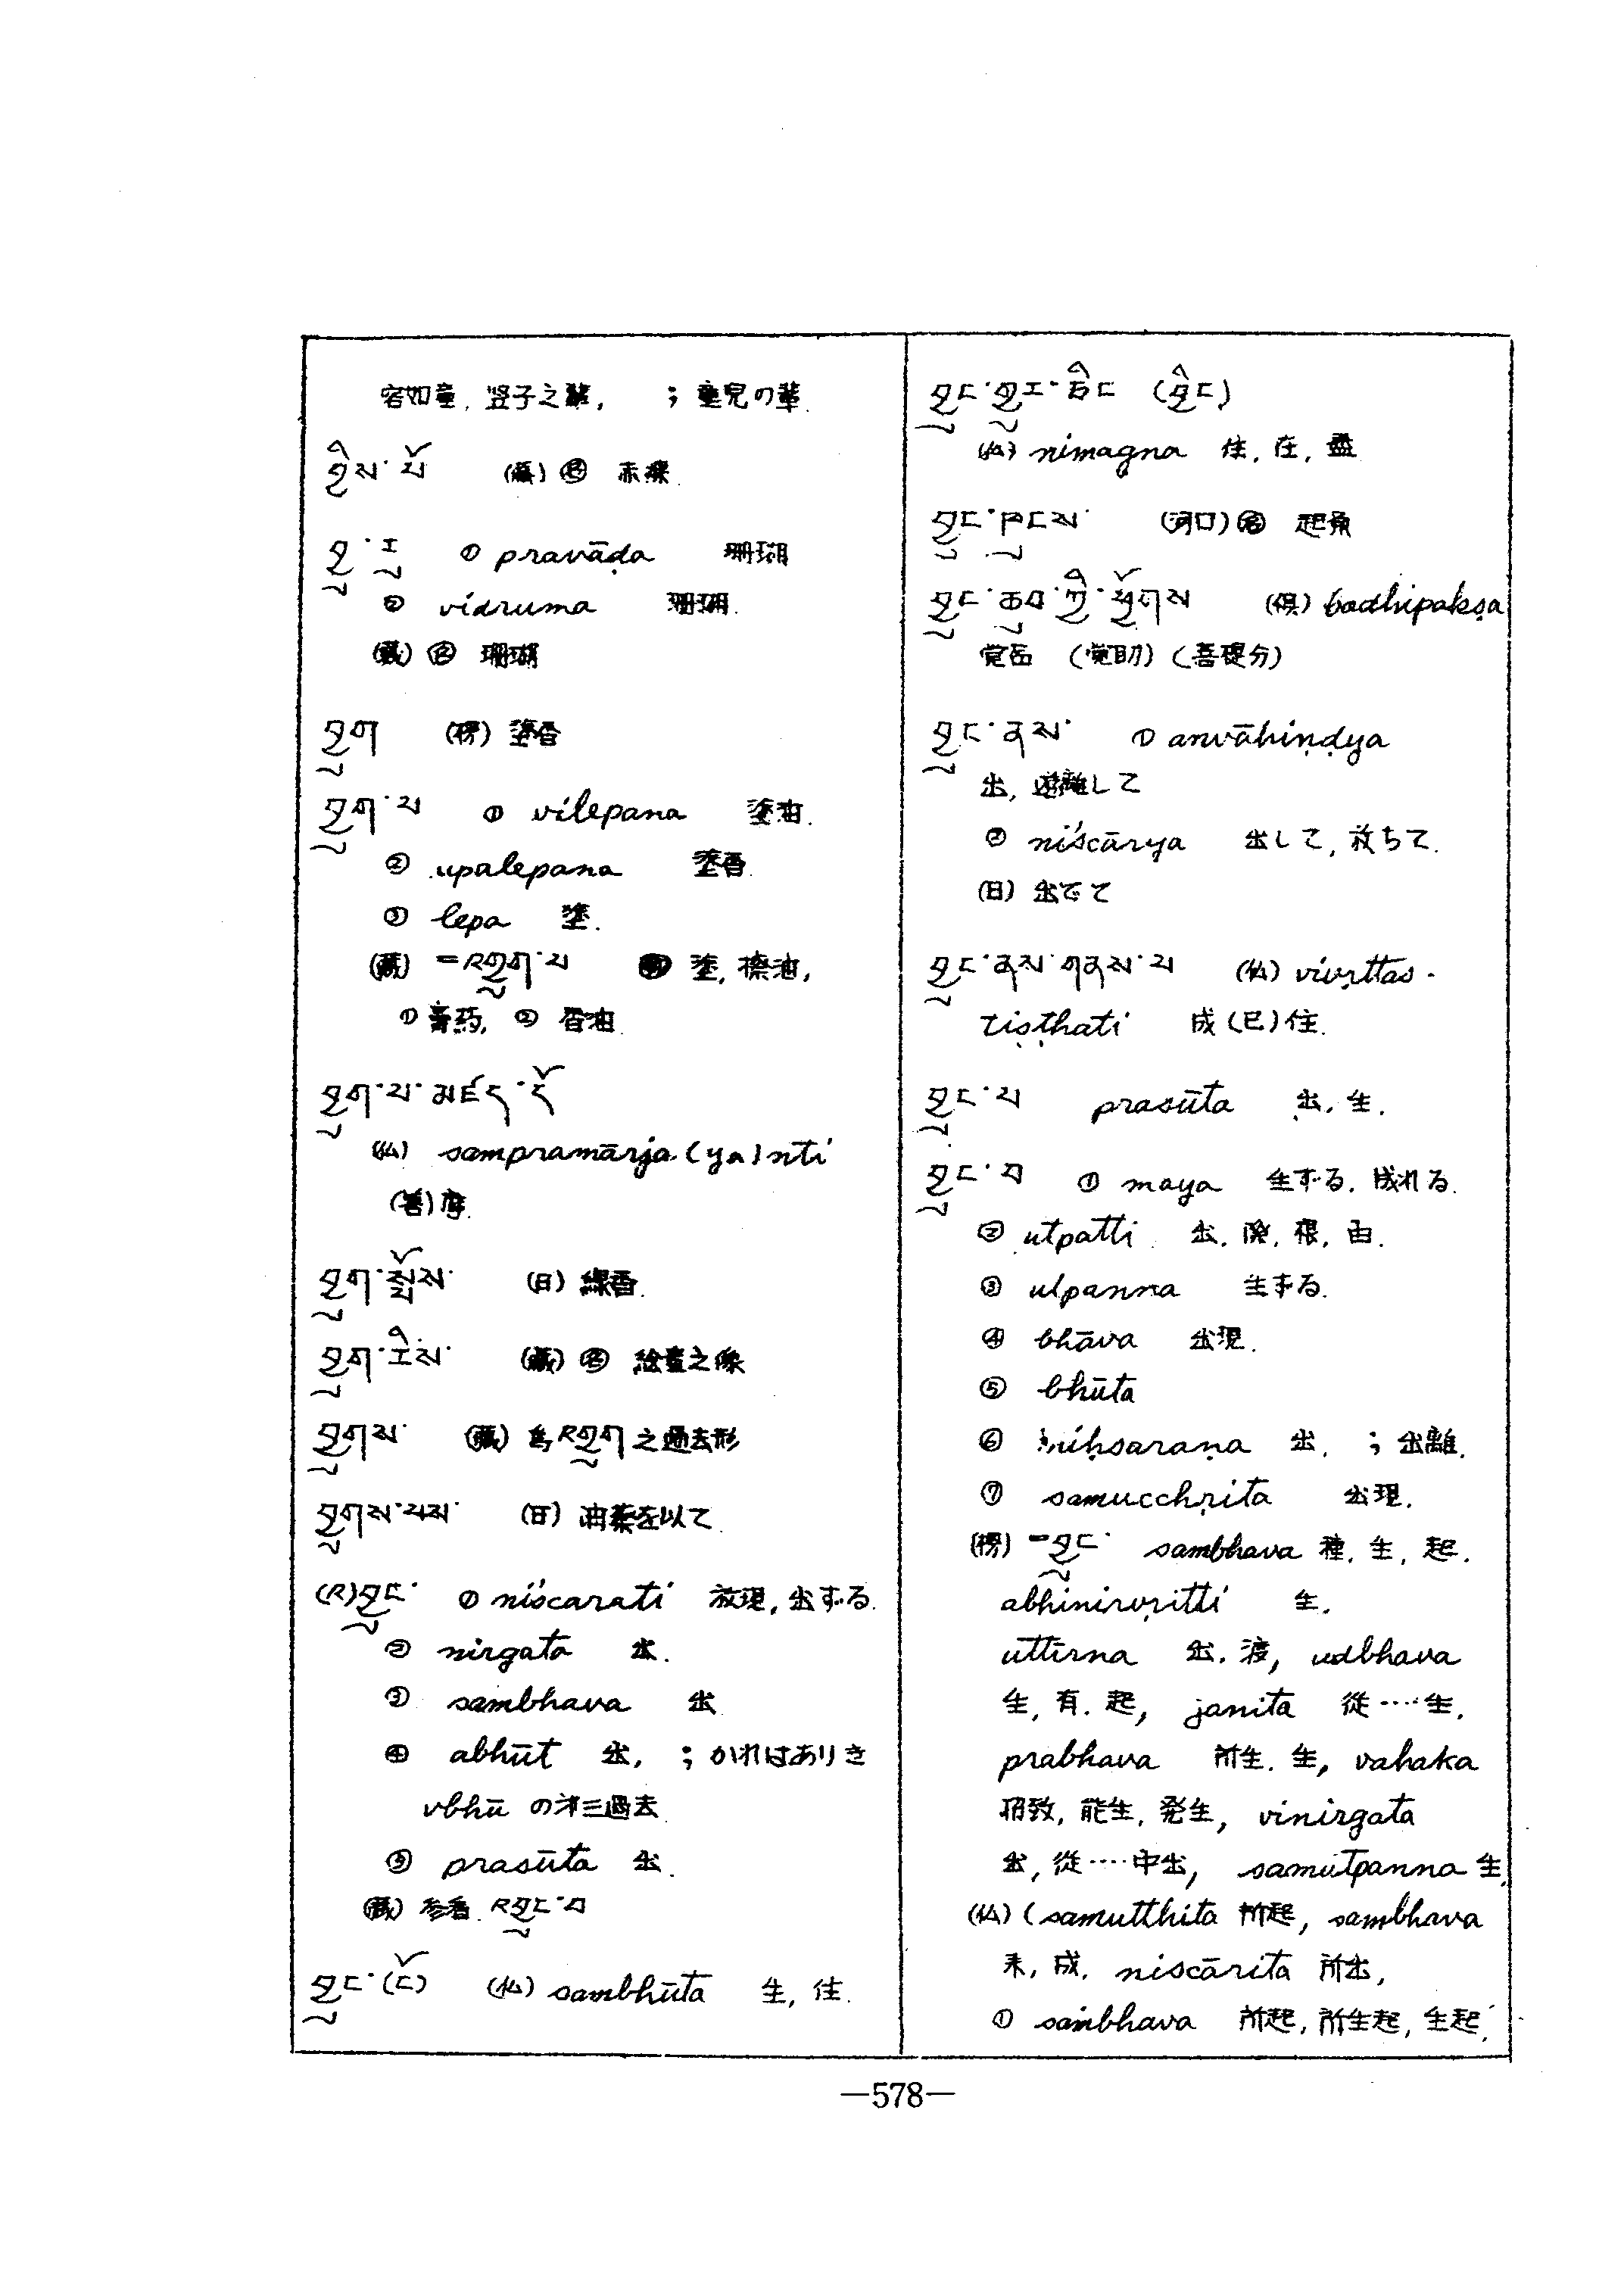 容如童, 竪子之輩, ; 童児の輩.
བྱིས་པོ (蔵) 名 赤裸.
བྱུ་རུ ① pravāḍa 珊瑚
② vidruma 珊瑚.
(蔵) 名 珊瑚
བྱུག (楞) 塗香
བྱུག་པ ① vilepana 塗油.
② upalepana 塗香.
③ lepa 塗.
(蔵) =Rབྱུག་པ 塗, 擦油,
① 膏药, ② 香油.
བྱུག་པ་མཛད་དོ
(仏) sampramārja(ya)nti
(善) 摩.
བྱུག་སྤོས་ (日) 線香.
བྱུག་རིས་ (蔵) 名 絵畫之像
བྱུགས་ (蔵) 為Rབྱུག之過去形
བྱུགས་པས་ (日) 油薬を以て.
(R)བྱུང་ ① niścarati 放現, 出ずる.
② nirgata 出.
③ sambhava 出
④ abhūt 出, ; かれはありき
√bhū の第三過去.
⑤ prasūta 出.
(蔵) 参看. Rབྱུང་བ
བྱུང་(ངོ) (仏) sambhūta 生, 住.
བྱུང་བྱུར་ཅིང (བྱིང)
(仏) nimagna 住, 在, 盡
བྱུང་ཁུངས་ (河口) 名 起原
བྱུང་ཆུབ་ཀྱི་ཕྱོགས (倶) badhipakṣa
覚品 (覚助) (菩提分)
བྱུང་ནས་ ① anvāhiṇḍya
出, 遊離して
② niścārya 出して, 放ちて.
(日) 出でて
བྱུང་ནས་གནས་པ (仏) vivṛttas-
tiṣṭhati 成(已)住.
བྱུང་པ prasūta 出, 生.
བྱུང་བ ① maya 生ずる. 成れる.
② utpatti 出, 隆, 根, 由.
③ utpanna 生ずる.
④ bhāva 出現.
⑤ bhūta
⑥ niḥsaraṇa 出, ; 出離.
⑦ samucchṛita 出現.
(楞) =བྱུང་ sambhava 種, 生, 起.
abhinirvṛitti 生.
uttīrna 出, 渡, udbhava
生, 有, 起, janita 從‥‥生.
prabhava 所生. 生, vahaka
招致, 能生, 発生, vinirgata
出, 從‥‥中出, samutpanna 生.
(仏) (samutthita 所起, sambhava
来, 成, niscārita 所出,
① saṁbhava 所起, 所生起, 生起,
—578—